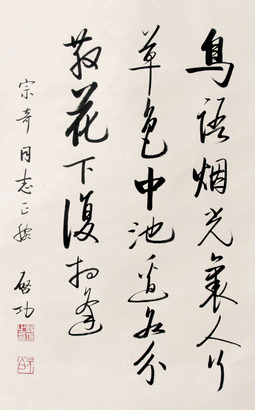 鳥語烟光裏人行
草色中池邊各分
散花下復相逢
宗奇同志正腕 啓功